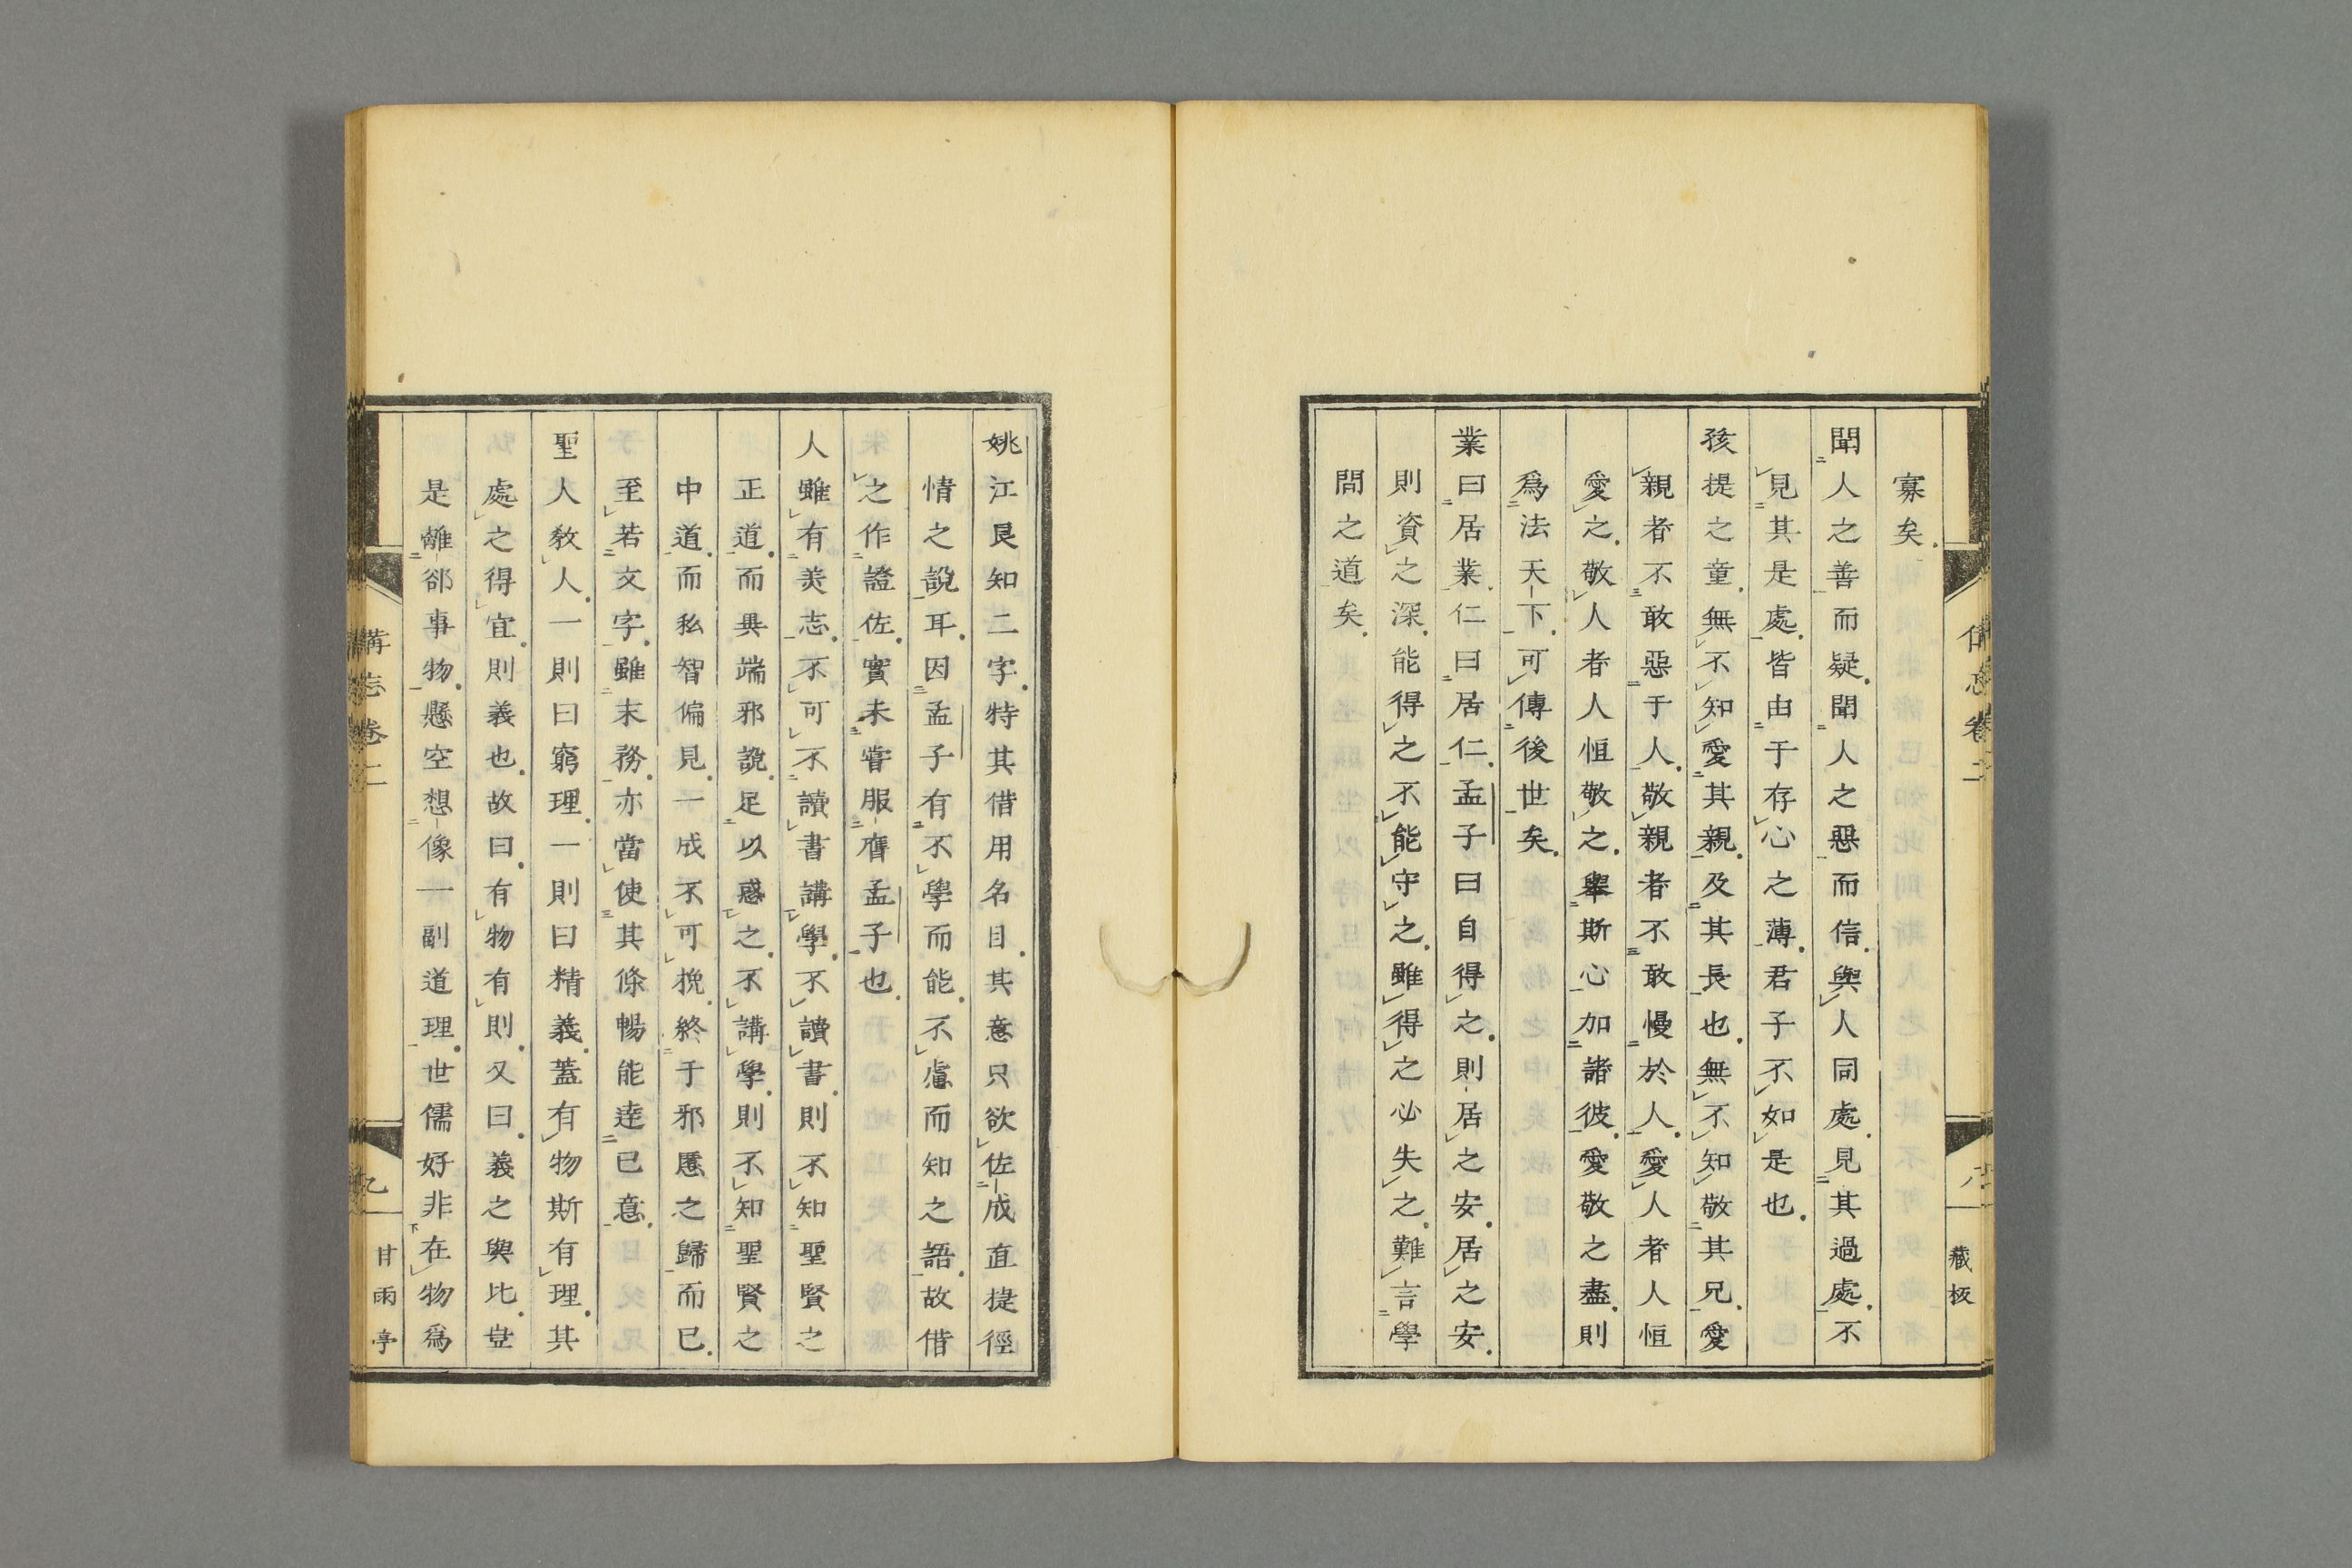 寡矣
聞人之善而疑聞人之惡而信與人同處見其過處不
見其是處皆由于存心之薄君子不如是也
孩提之童無不知愛其親及其長也無不知敬其兄愛
親者不敢惡于人敬親者不敢慢於人愛人者人恒
愛之敬人者人恒敬之舉斯心加諸彼愛敬之盡則
爲法天下可傳後世矣
業曰居業仁曰居仁孟子曰自得之則居之安居之安
則資之深能得之不能守之雖得之必失之難言學
問之道矣
藏板
姚江良知二字特其借用名目其意只欲佐成直捷徑
情之說耳因孟子有不學而能不慮而知之語故借
之作證佐實未甞服膺孟子也
人雖有美志不可不讀書講學不讀書則不知聖賢之
正道而異端邪說足以惑之不講學則不知聖賢之
中道而私智偏見一成不可挽終于邪慝之歸而已
至若文字雖末務亦當使其條暢能達已意
聖人敎人一則曰窮理一則曰精義蓋有物斯有理其
處之得宜則義也故曰有物有則又曰義之與比豈
是離郤事物懸空想像一副道理世儒好非在物爲
講志卷二
甘雨亭